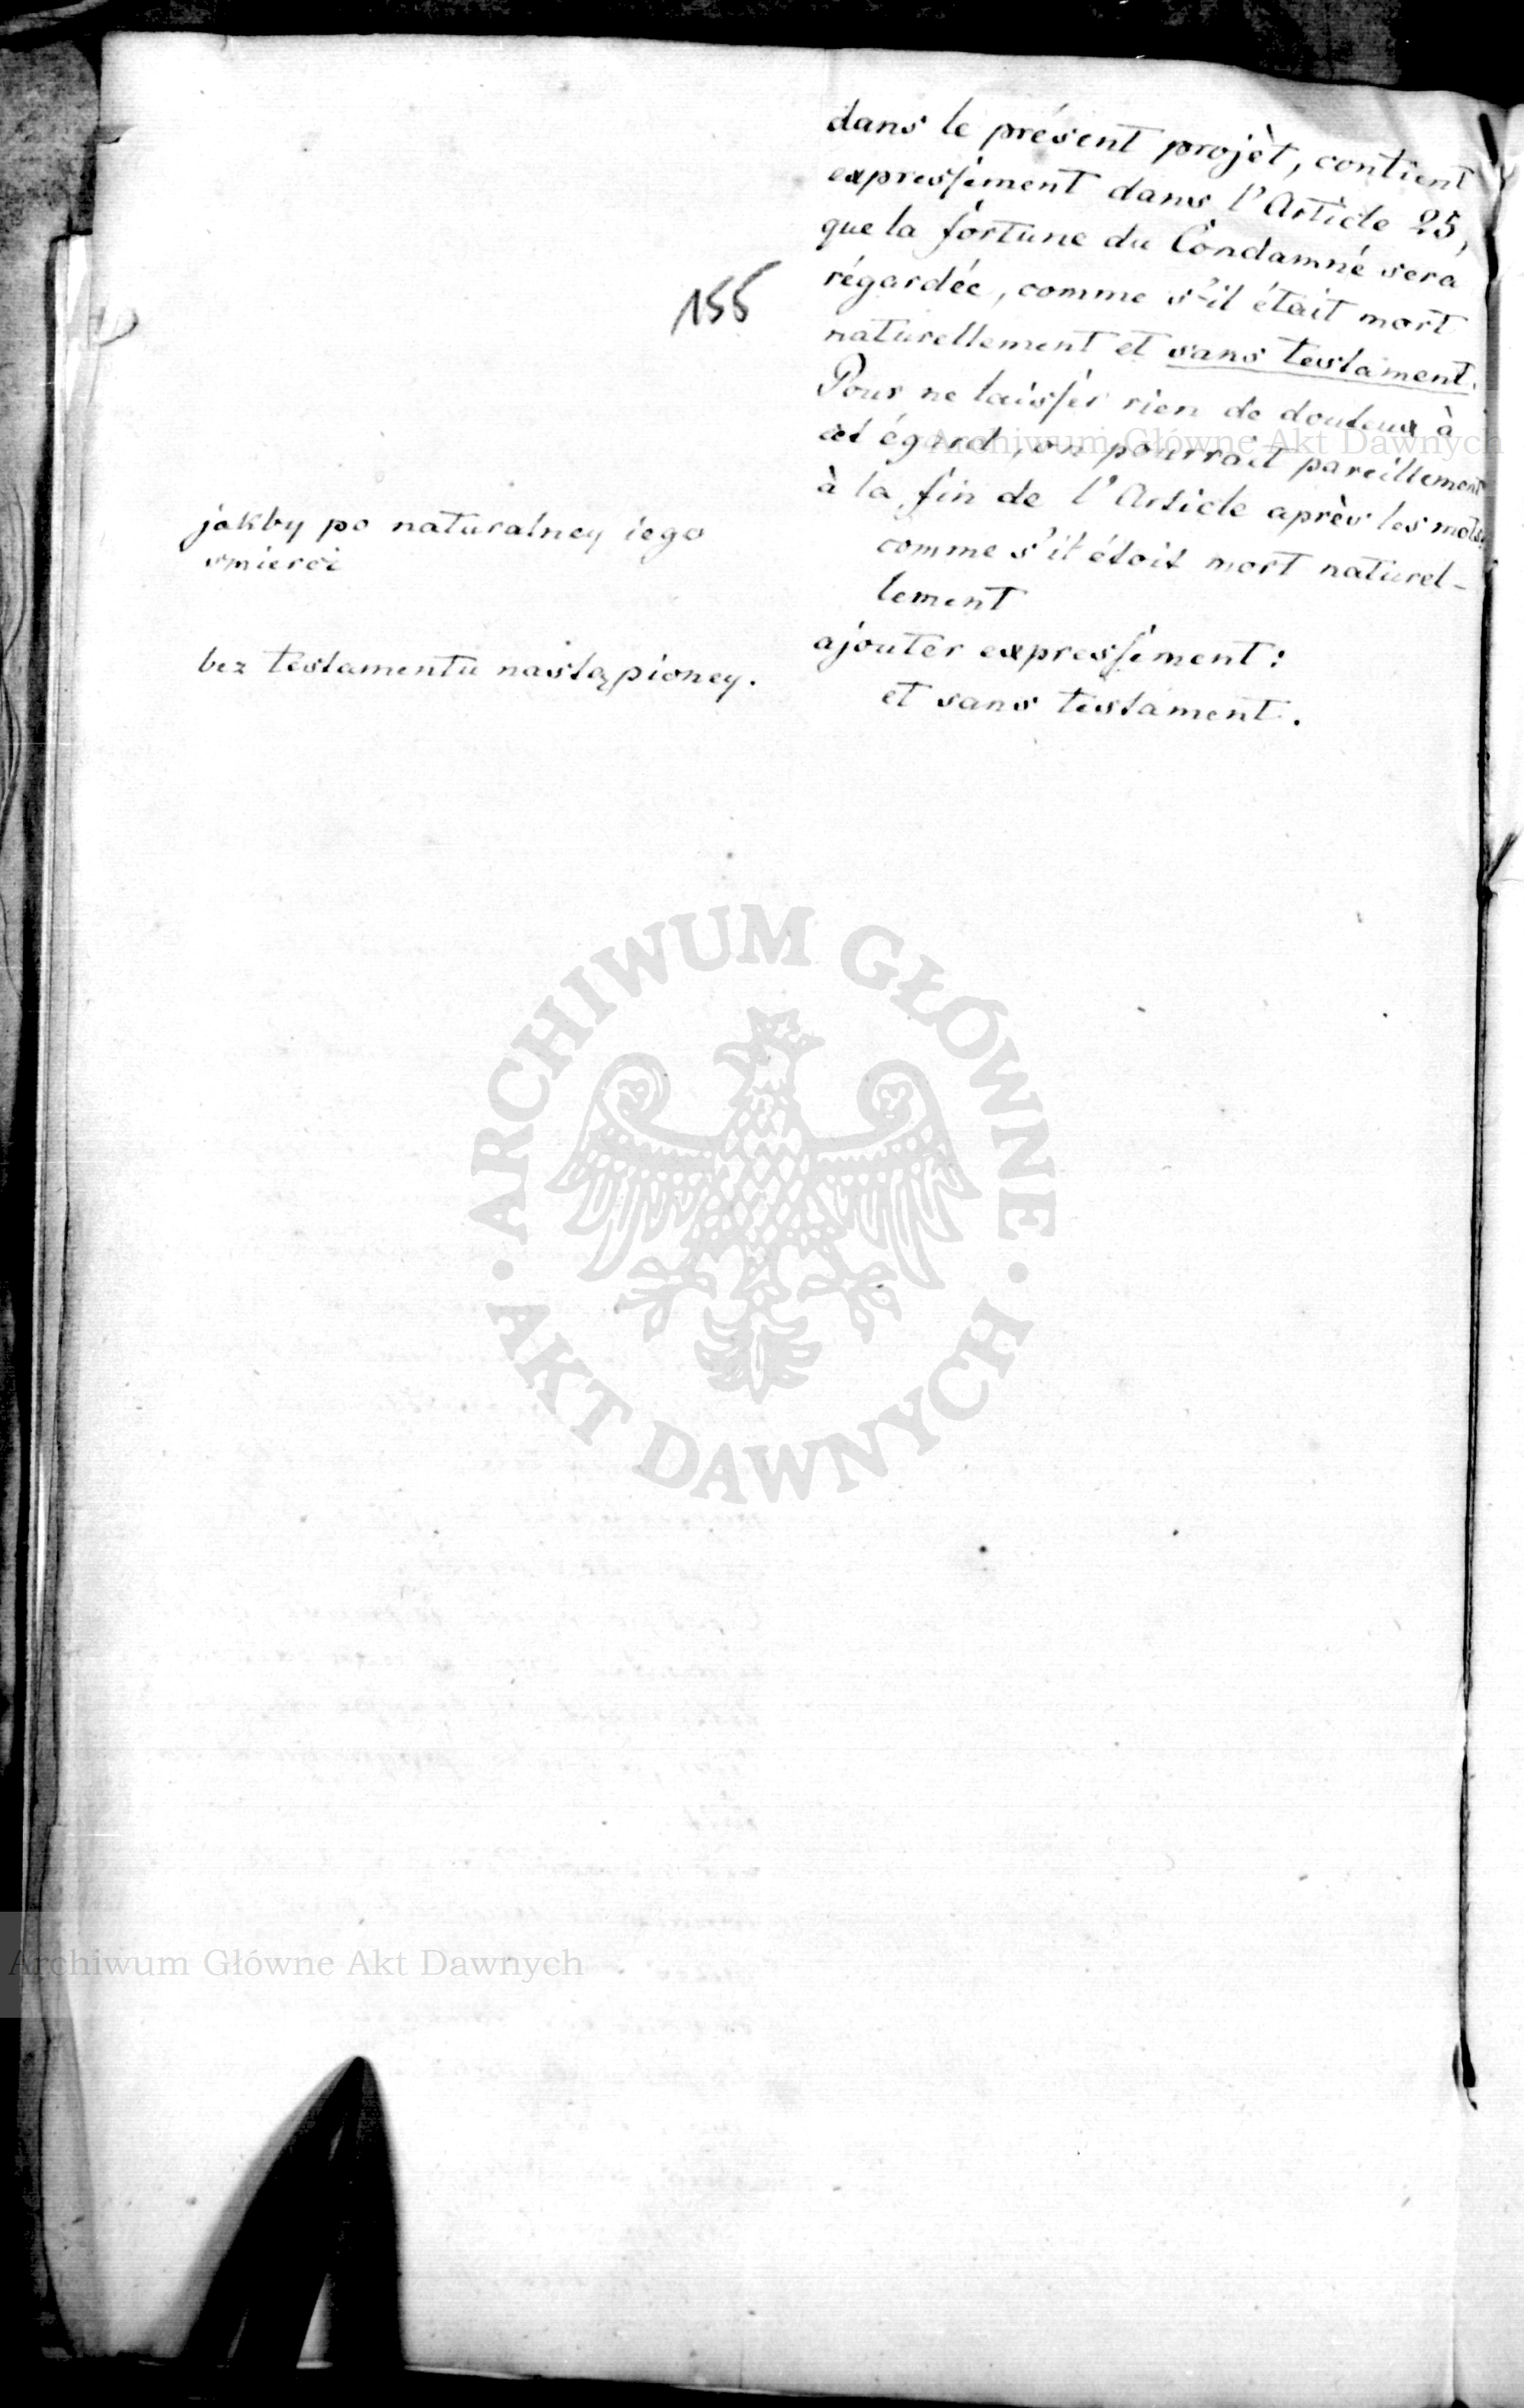 155
dans le présent projèt, contient
expressément dans l'Article 25,
que la fortune du Condamné sera
régardée, comme s'il était mort
naturellement et sans testament.
Pour ne laisser rien de douteux à
cet égard, on pourrait pareillement
à la fin de l'Article après les mots:
comme s'il étoit mort naturel-
lement
ajouter expressément:
et sans testament.
jakby po naturalney iego
smierci
bez testamentu nastąpioney.
Archiwum Główne Akt Dawnych
ARCHIWUM GŁÓWNE
AKT DAWNYCH
Archiwum Główne Akt Dawnych